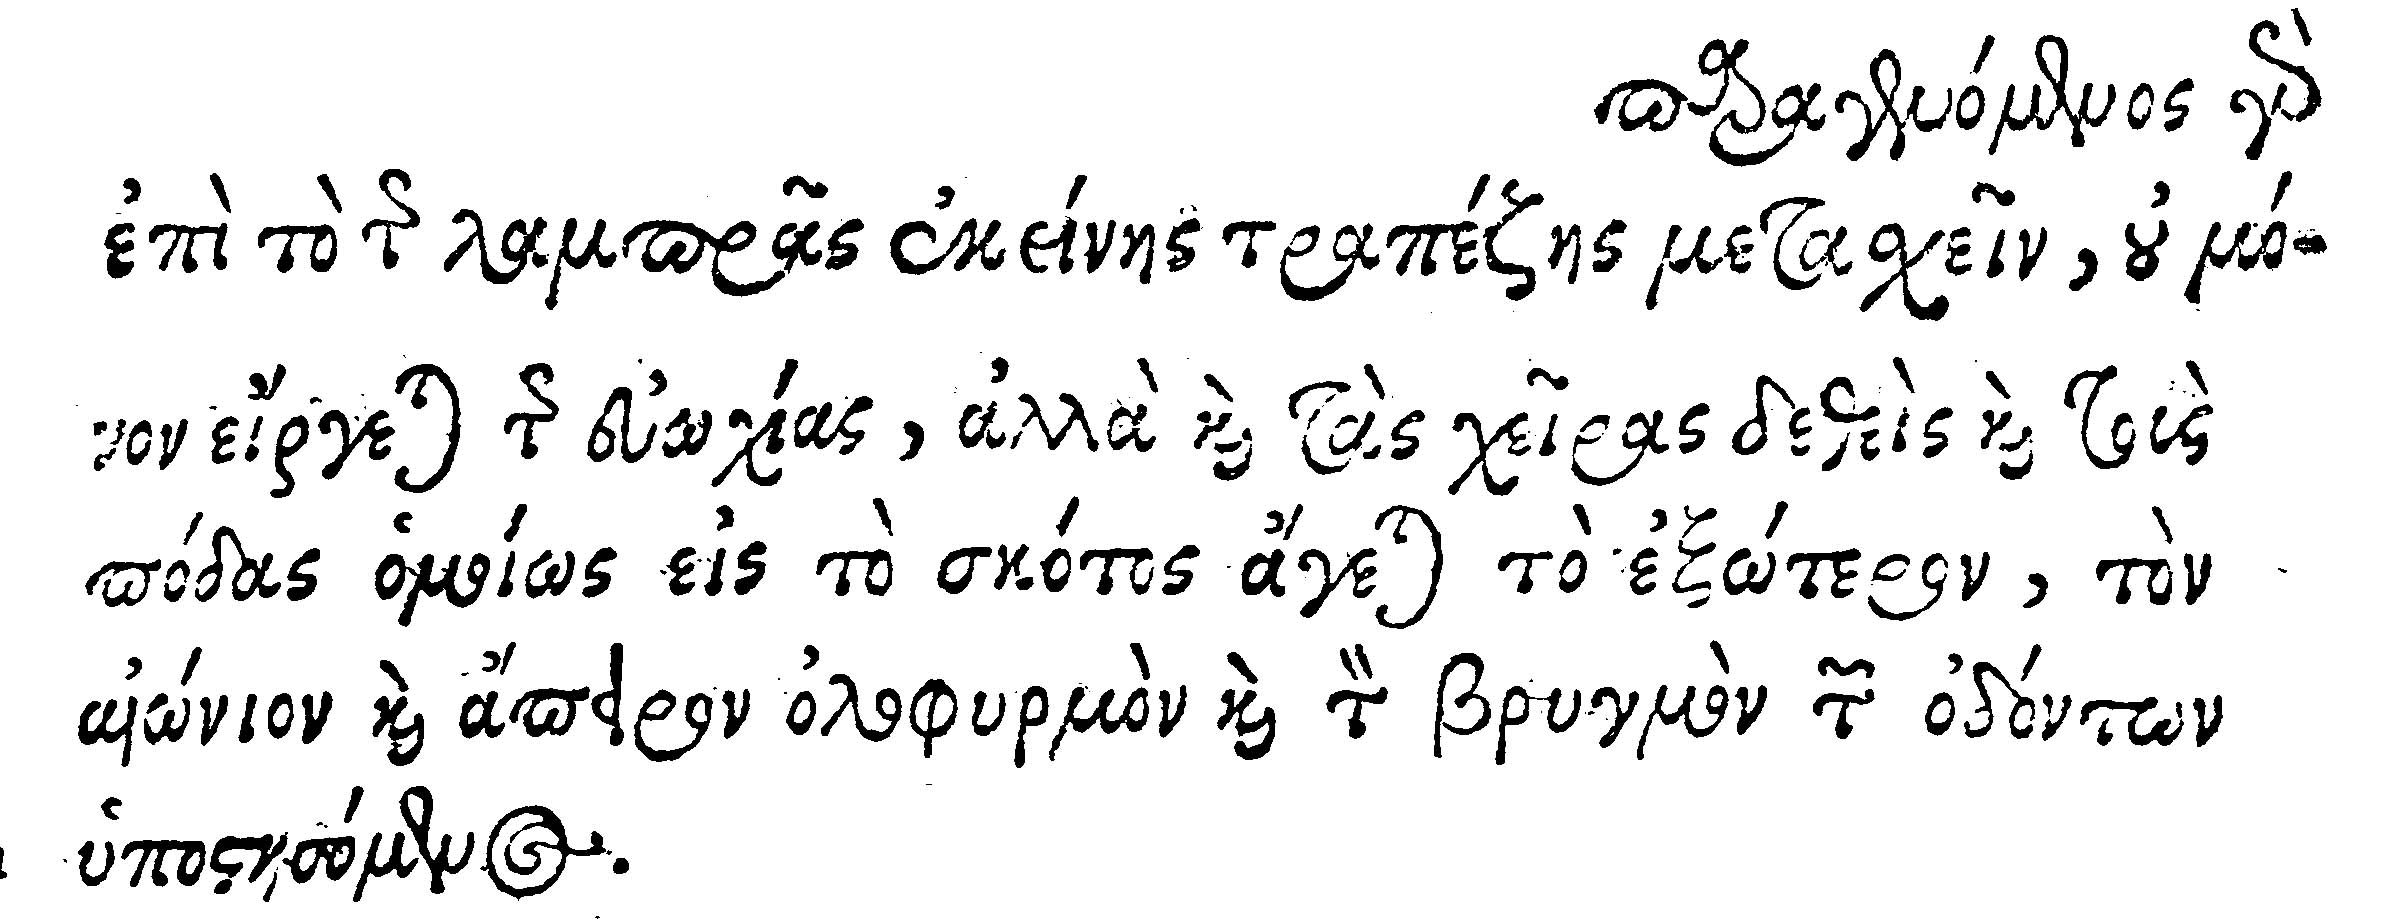 παραγενόμενος γὰρ
ἐπὶ τὸ τῆς λαμπρᾶς ἐκείνης τραπέζης μετασχεῖν, οὐ μό-
νον εἴργεται τῆς εὐωχίας, ἀλλὰ καὶ τὰς χεῖρας δεθεὶς καὶ τοὺς
πόδας ὁμοίως εἰς τὸ σκότος ἄγεται τὸ ἐξώτερον, τὸν
αἰώνιον καὶ ἄπειρον ὀλοφυρμὸν καὶ τὸν βρυγμὸν τῶν ὀδόντων
ὑποστησόμενος.